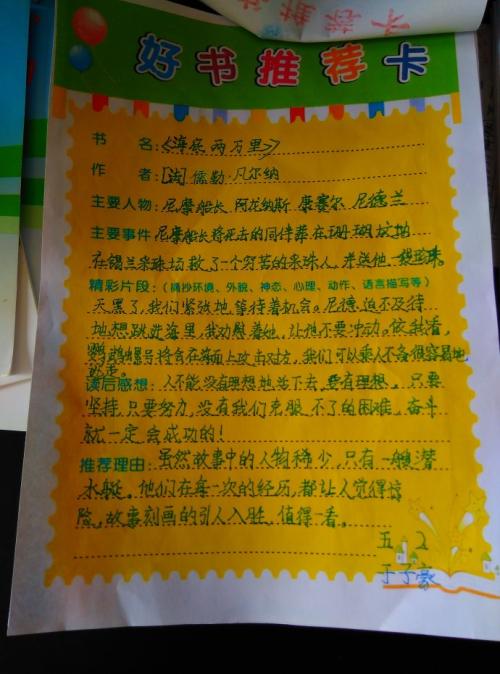 好书推荐卡
书 名:《海底两万里》
作 者:[法]儒勒·凡尔纳
主要人物:尼摩船长 阿龙纳斯 康赛尔 尼德兰
主要事件 尼摩船长将死去的同伴葬在珊瑚坟地
在锡兰采珠场救了一个穷苦的采珠人,并送他一袋珍珠。
精彩片段:(摘抄环境、外貌、神态、心理、动作、语言描写等)
天黑了,我们紧张地等待着机会。尼德迫不及待
地想跳进海里,我劝慰着他,让他不要冲动。依我看,
鹦鹉螺号将会在海面上攻击对方,我们可以乘人不备很容易地
逃走。
读后感想:人不能没有理想地活下去,要有理想,只要
坚持,只要努力,没有我们克服不了的困难,奋斗
就一定会成功的!
推荐理由:虽然故事中的人物稀少,只有一艘潜
水艇。他们在每一次的经历,都让人觉得惊
险,故事刻画的引人入胜,值得一看。
五 2
于子豪